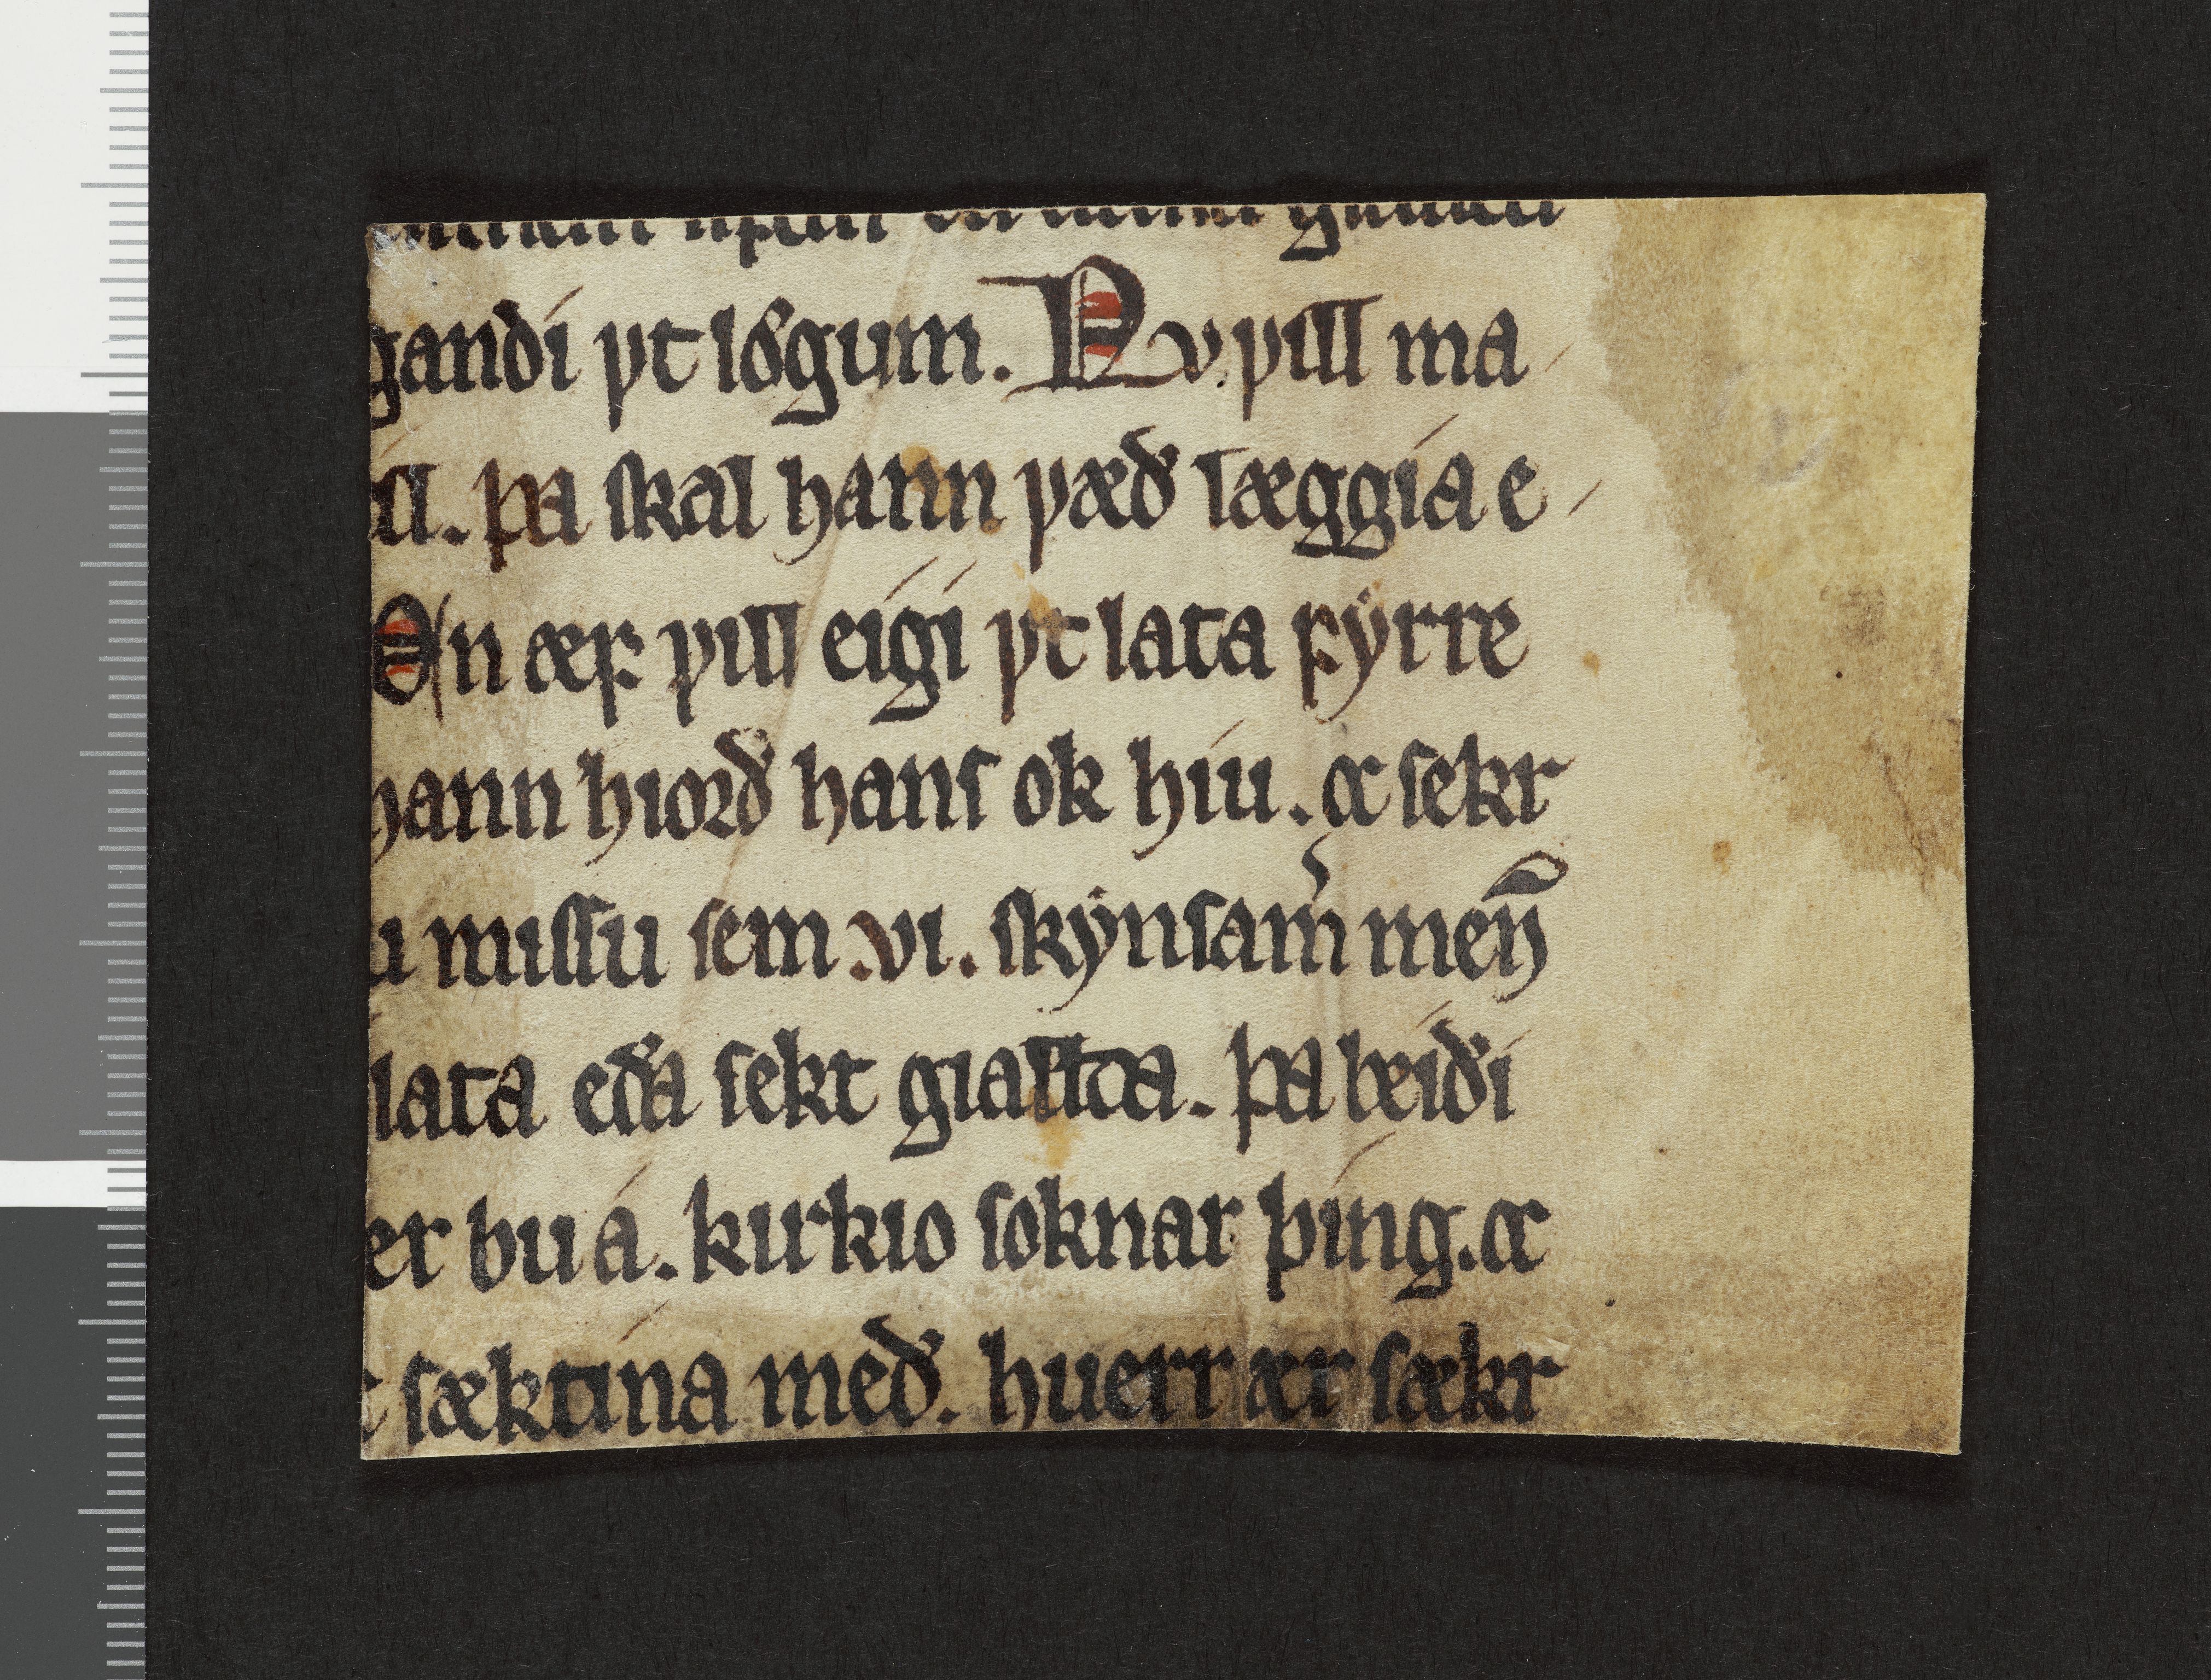 gandi ꝩt lǫgum. Nv ꝩill ma
ıll. þa skal hann ꝩæð læggia e
En æf ꝩill eigi ꝩt lata fyrre
hann hiorð hans ok hiu. æ sekr
u missu sem .vi. skynsam͛ men̄
lata eða sekt gialda. þa beiði
er bu á. kirkio soknar þing. æ
t sæktina með. huerr ær sækr